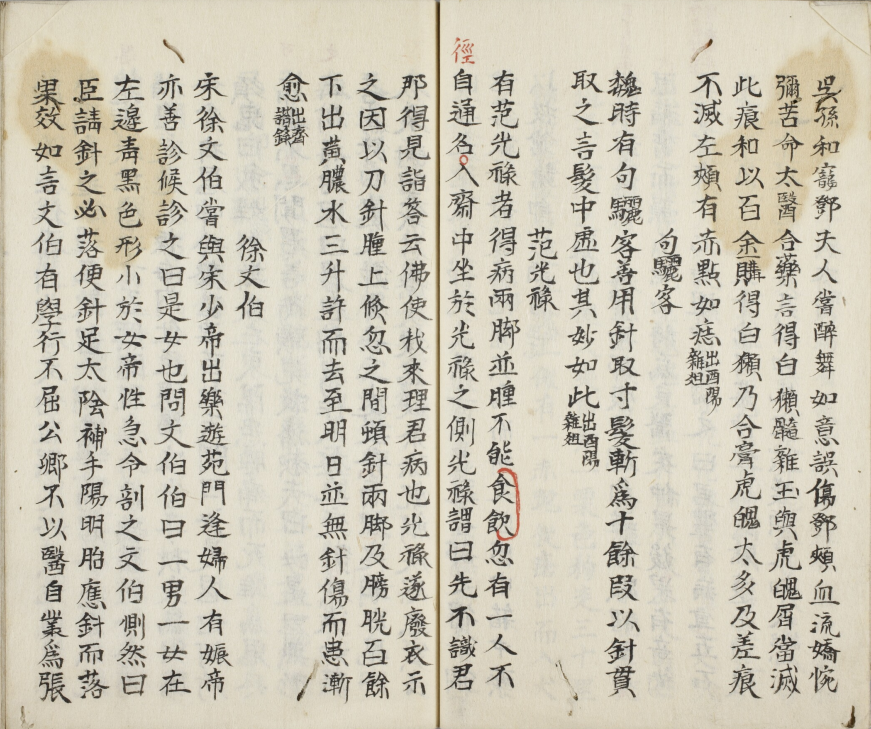 吳孫和寵鄧夫人嘗醉舞如意誤傷鄧頰血流嬌惋
彌苦命太醫合藥言得白獺髓雜玉與虎魄屑當滅
此痕和以百金購得白獺乃合膏虎魄太多及差痕
不滅左頰有赤點如痣出酉陽雜俎
句驪客
魏時有句驪客善用針取寸髮斬爲十餘段以針貫
取之言髮中虛也其妙如此出酉陽雜俎
范光祿
有范光祿者得病兩脚並腫不能食飲忽有一人不
徑
自通名入齋中坐於光祿之側光祿謂曰先不識君
那得見詣答云佛使我來理君病也光祿遂廢衣示
之因以刀針腫上倏忽之間頓針兩脚及膀胱百餘
下出黃膿水三升許而去至明日並無針傷而患漸
愈出齊諧錄
徐文伯
宋徐文伯嘗與宋少帝出樂遊苑門逢婦人有娠帝
亦善診候診之曰是女也問文伯伯曰一男一女在
左邊青黑色形小於女帝性急令剖之文伯惻然曰
臣請針之必落便針足太陰補手陽明胎應針而落
果效如言文伯有學行不屈公卿不以醫自業爲張